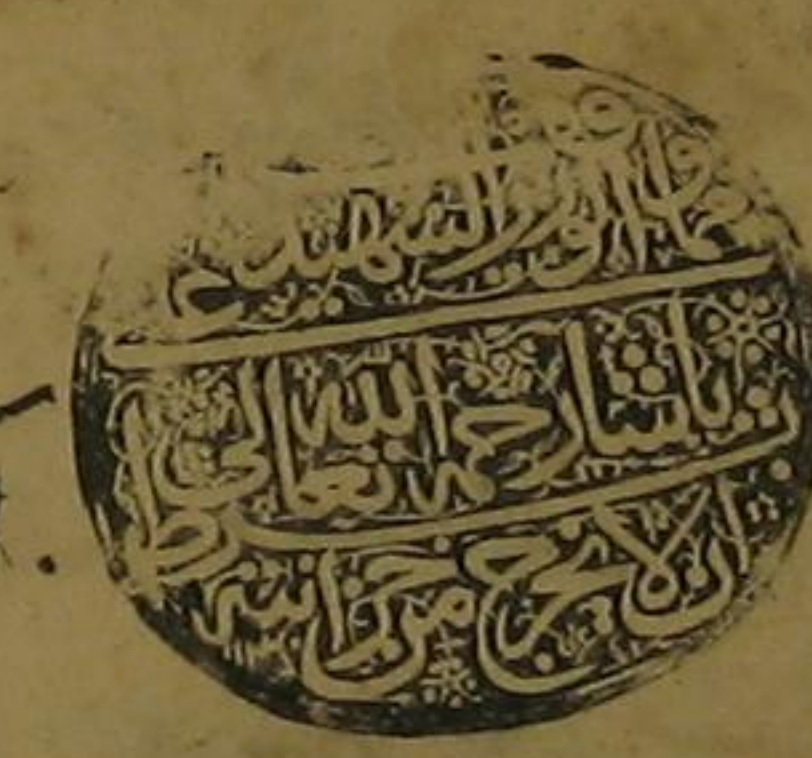 مما وقف الوزير الشهيد علي
باشا رحمه الله تعالى بشرط
ان لا يخرج من خزانته